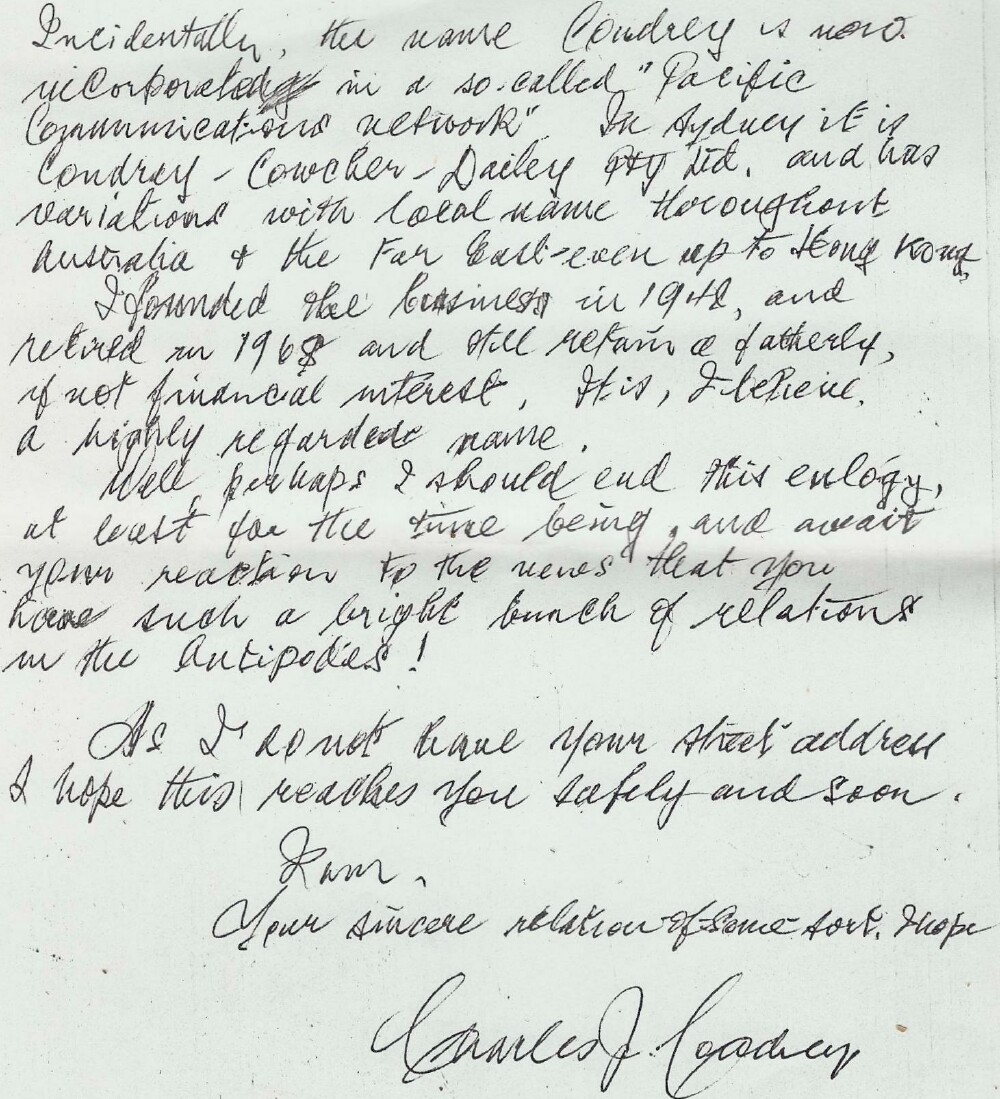 Incidentally, the name Coudrey is now
incorporated in a so-called "Pacific
Communications network". In Sydney it is
Coudrey-Cowcher-Dailey Pty Ltd. and has
variations with local name throughout
Australia & the Far East-even up to Hong Kong
I founded the business in 1948, and
retired in 1968 and still retain a fatherly,
if not financial interest. It is, I believe,
a highly regarded name.
Well, perhaps I should end this eulogy,
at least for the time being, and await
your reaction to the news that you
have such a bright bunch of relations
in the Antipodes!
As I do not have your street address
I hope this reaches you safely and soon.
I am,
Your sincere relation of some sort, I hope
Charles J. Coudrey